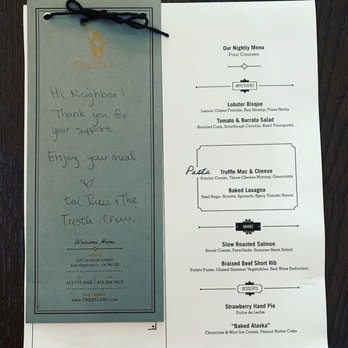 TRESTLE
Hi Neighbor!
Thank you for
your support
Enjoy your meal
The
Trestle Crew
Welcome Home
531 JACKSON STREET
SAN FRANCISCO, CA 94133
TRESTLESF.COM
Our Nightly Menu
Four Courses
APPETIZERS
Lobster Bisque
Lemon Crème Fraîche, Bay Shrimp, Fines Herbs
Tomato & Burrata Salad
Roasted Corn, Sourdough Crouton, Basil Vinaigrette
Pasta
Truffle Mac & Cheese
Porcini Cream, Three-Cheese Mornay, Gremolata
Baked Lasagna
Beef Ragu, Ricotta, Spinach, Spicy Tomato Sauce
MAINS
Slow Roasted Salmon
Sorrel Cream, Persillade, Summer Bean Salad
Braised Beef Short Rib
Potato Purée, Glazed Summer Vegetables, Red Wine Reduction
DESSERTS
Strawberry Hand Pie
Dulce de Leche
"Baked Alaska"
Chocolate & Mint Ice Cream, Peanut Butter Cake